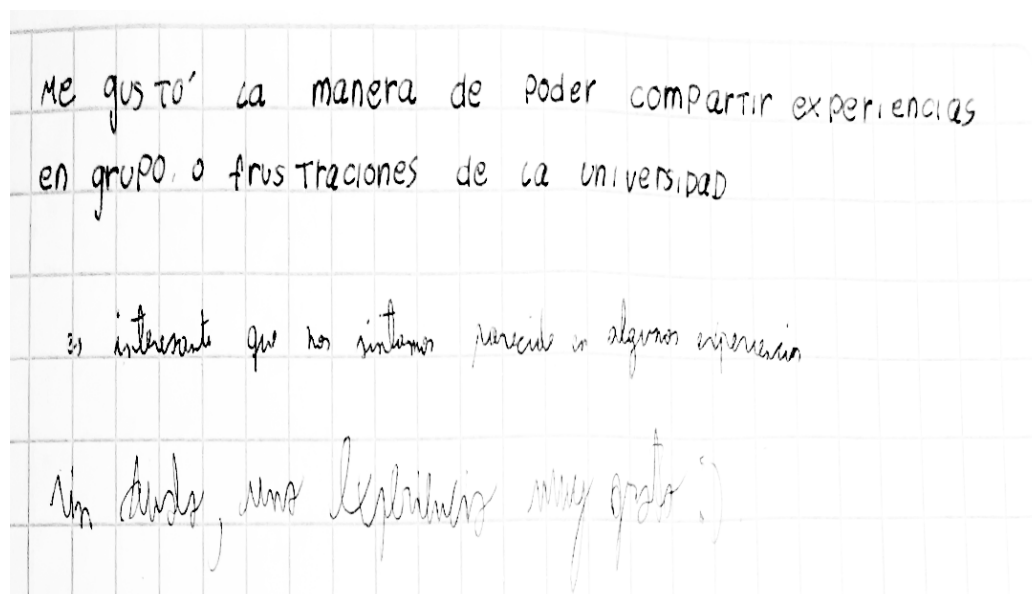 Me gustó la manera de poder compartir experiencias
en grupo. o frustraciones de la universidad
es interesante que nos sintamos parecido en algunas experiencias
Sin duda, una experiencia muy grata :)